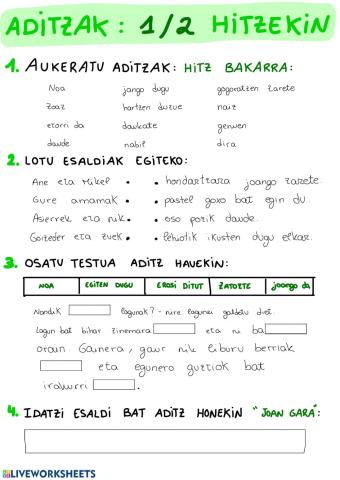 ADITZAK: 1/2 HITZEKIN
1. AUKERATU ADITZAK: HITZ BAKARRA:
Noa jango dugu gogoratzen zarete
Zoaz hartzen duzue naiz
etorri da daukate genuen
daude nabil dira
2. LOTU ESALDIAK EGITEKO:
Ane eta Mikel • • hondartzara joango zarete.
Gure amamak • • pastel goxo bat egin du.
Asierrek eta nik • • oso pozik daude.
Goizeder eta zuek • • lehiotik ikusten dugu elkar.
3. OSATU TESTUA ADITZ HAUEKIN:
NOA EGITEN DUGU EROSI DITUT ZATOZTE joango da
Nondik lagunak? - nire lagunei galdetu diet.
Lagun bat bihar zinemara eta ni ba
orain. Gainera, gaur nik liburu berriak
eta egunero guztiok bat
irakurri .
4. IDATZI ESALDI BAT ADITZ HONEKIN "JOAN GARA":
LIVEWORKSHEETS